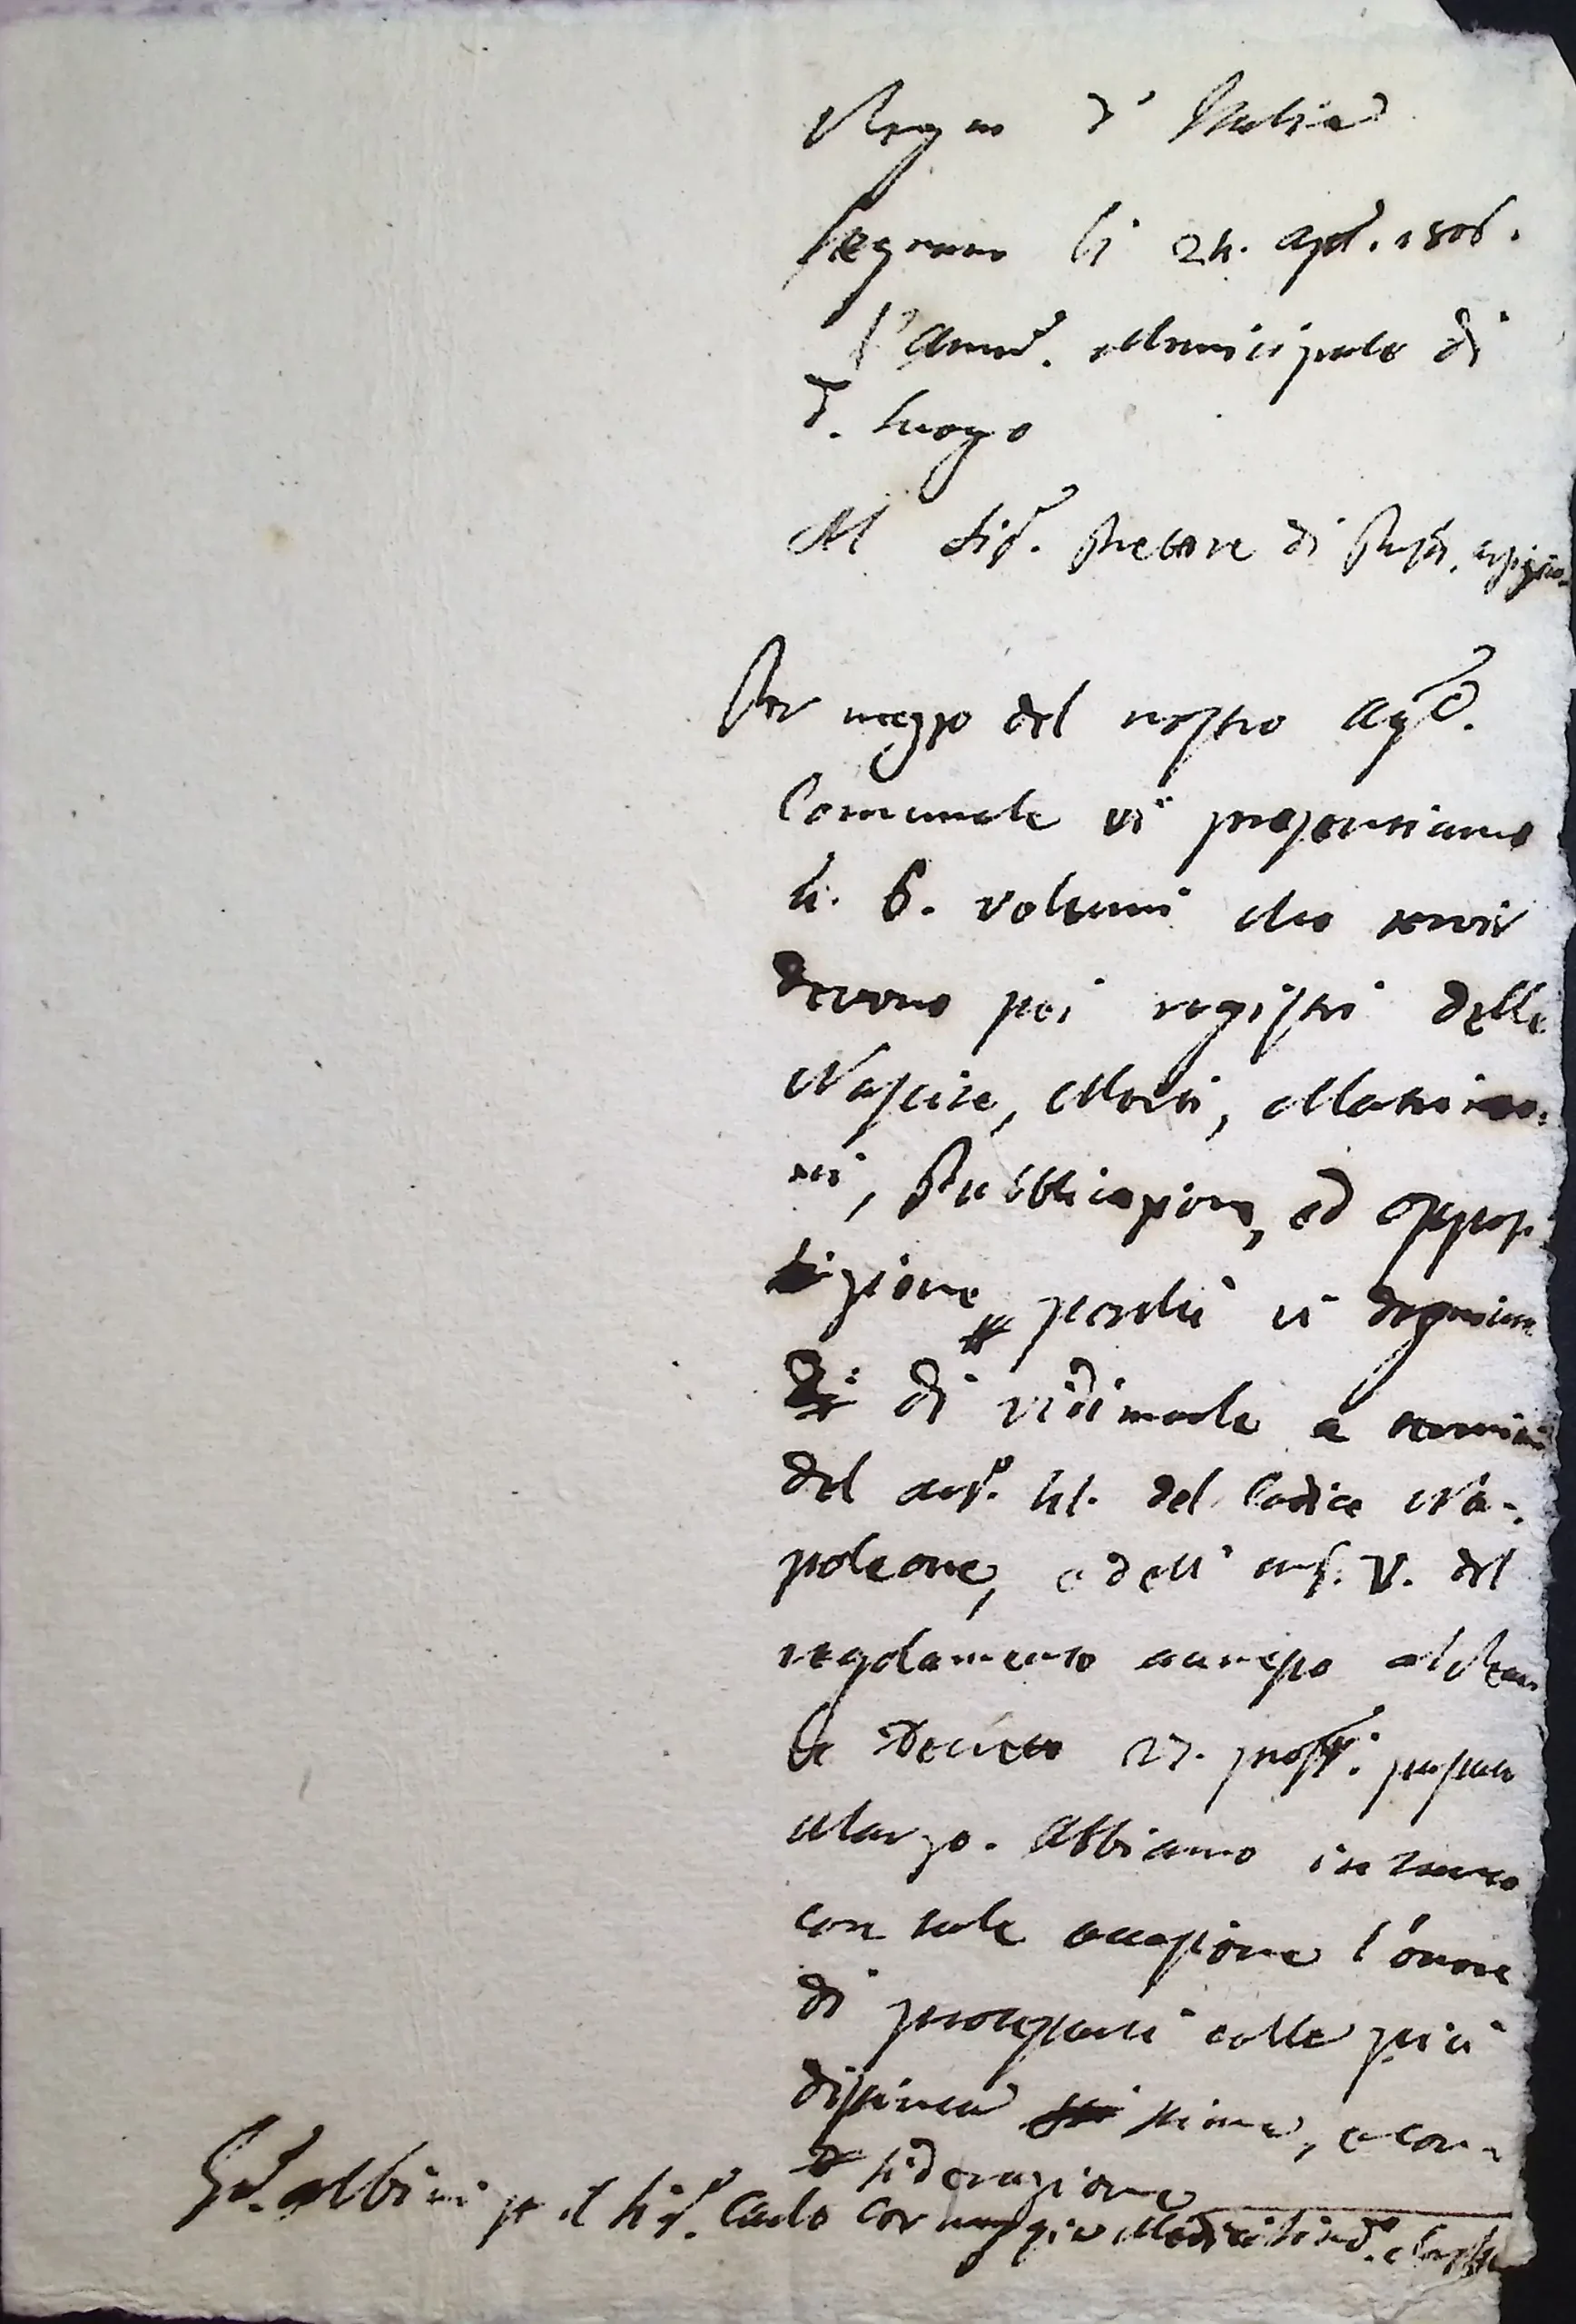 Regno d'Italia
Legnano li 24. Apr. 1806.
L'Amm. Municipale di
d. Luogo
Al Sig. Pretore di Busto
Per mezzo del nostro Ag.
Comunale vi presentiamo
li. 6. volumi che servir
devono pei registri delle
Nascite, Morti, Matrimo-
nj, Pubblicazioni, ed oppos
izione perchè vi degniate
di vidimarle a termini
del art. 41. del Codice Na-
poleone, e dell'art. V. del
regolamento annesso al Rea
le Decreto 27. pross. passato
Marzo. Abbiamo intanto
con tale occasione l'onore
di protestarvi colla più
distinta stima, e con-
siderazione
Albini pr il Sig. Carlo Cor